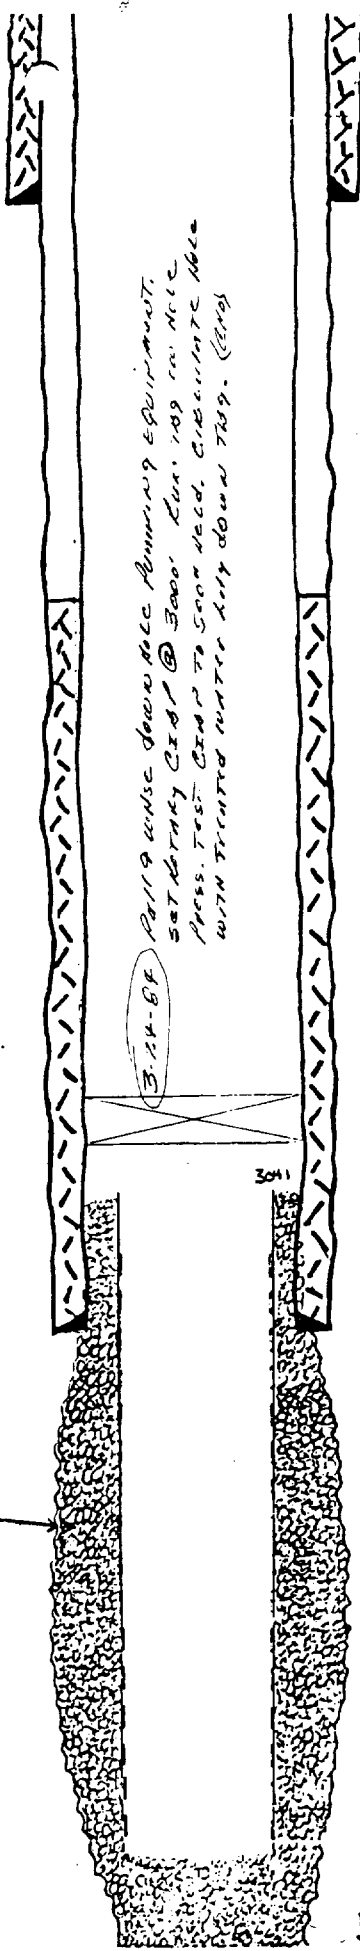 3-24-84 Pull & WNSC down hole PUMPING EQUIPMENT.
SET ROTARY CIBP @ 3000' RUN TBG IN HOLE
PRESS. TEST CIBP TO 500# HELD. CIRCULATE HOLE
WITH TREATED WATER LAY DOWN TBG. (END)
3041